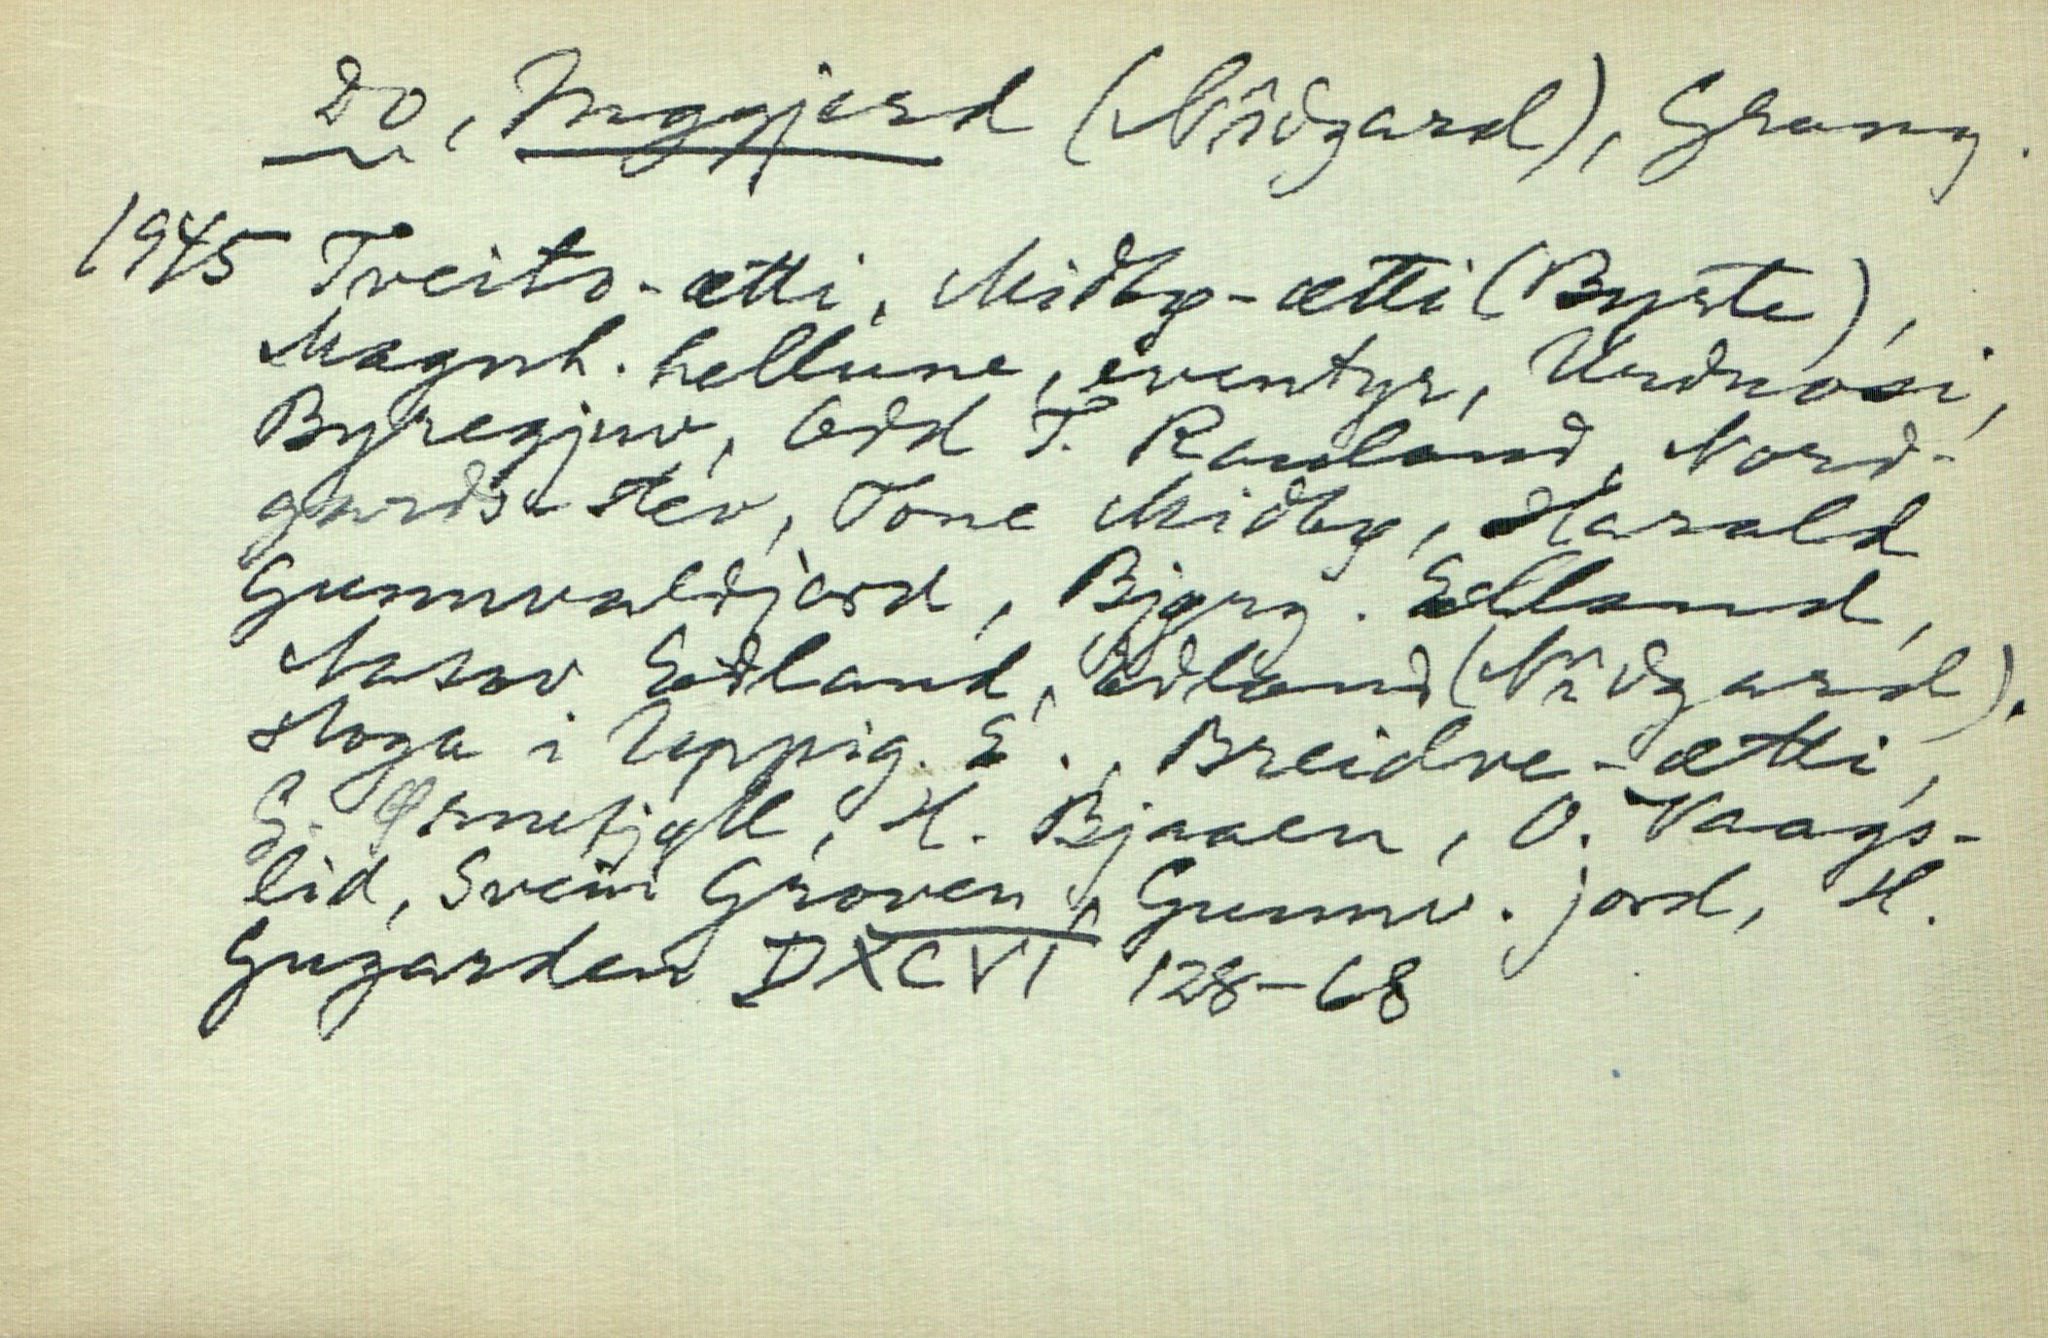 Do, Inggjerd (Nōrdgard), Grung.
1945 Tveito-ætti, Midby-ætti (Byrte),
Magnh. hellune, eventyr, Urdnosi,
Byregjuv, Odd T. Rauland, Nord-
gards-stev, Tone Midby, Harald
Gunnvaldjord, Bjørg. Edland,
Edland, Edland (Nōrdgard).
stoga i Uppig. E., Breidve-ætti,
G. Ormefjell, H. Bjaaen, O. Vaags-
lid, Svein Groven, Gunnv. jord, H.
Gugarden DXCVI 128-68